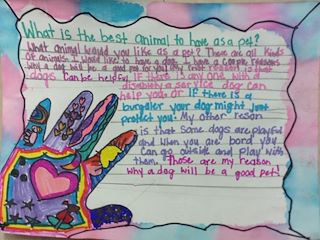 What is the best animal to have as a pet?
What animal would you like as a pet? There are all kinds
of animals I would like to have a dog. I have a couple reasons
why a dog will be a good pet for you. My first reason is that
dogs can be helpful if there is any one with a
disability a service dog can
help you. Or IF there is a
burgaler your dog might Just
protect you. My other reson
is that some dogs are playful
and when you are bord you
can go outside and play with
them. Those are my reason
why a dog will be a good pet!